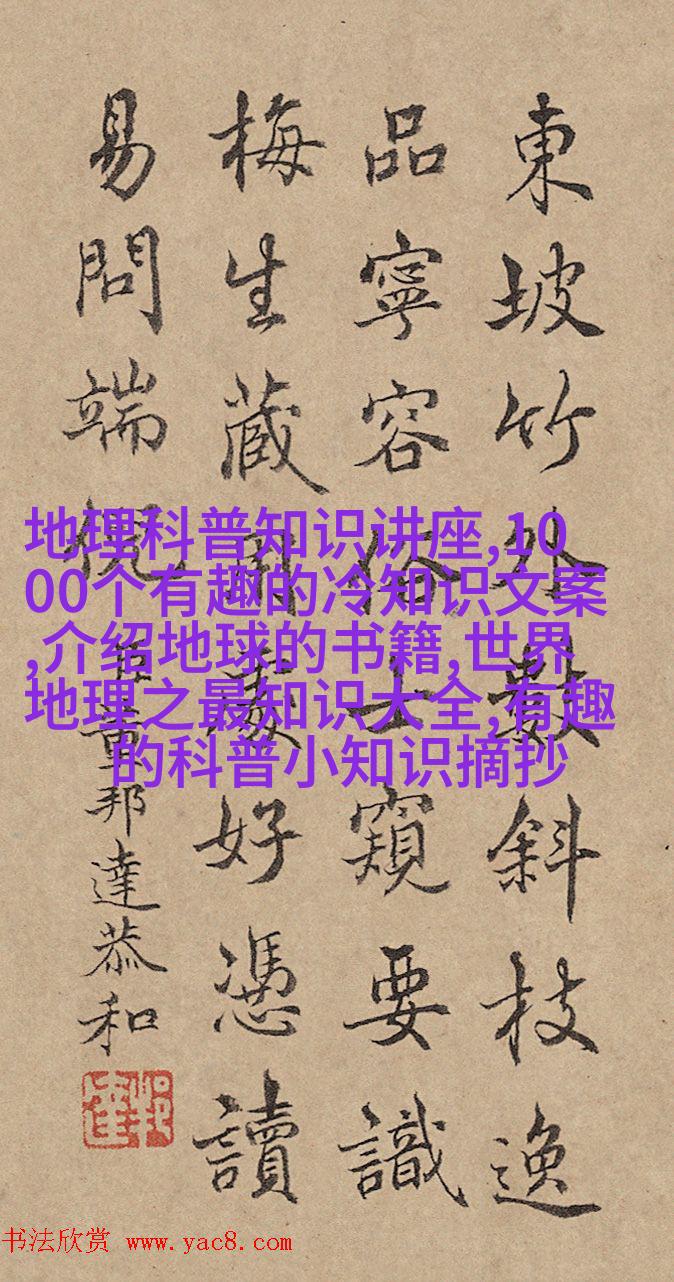 東坡竹外數斜枝逸
品寧容俗士窺要識
梅生藏用處好憑讀
易問端倪
臣董邦達恭和
地理科普知识讲座,10
00个有趣的冷知识文案
,介绍地球的书籍,世界
地理之最知识大全,有趣
的科普小知识摘抄
书法欣赏 www.yac8.com